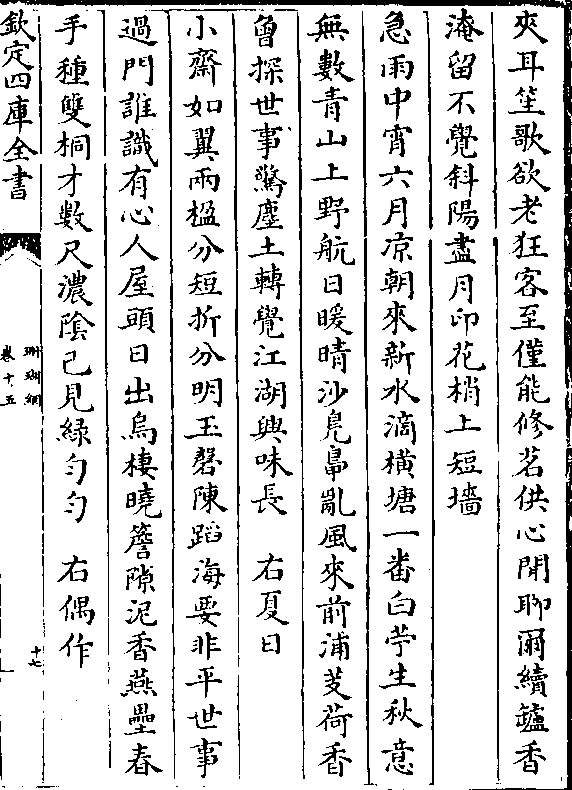 夾耳笙歌欲老狂客至僅能修茗供心閒聊爾續罏香
淹留不覺斜陽盡月印花梢上短墻
急雨中宵六月凉朝來新水滴横塘一番白苧生秋意
無數青山上野航日暖晴沙鳧鼻亂風來前浦芰荷香
曾探世事驚塵土轉覺江湖興味長　右夏日
小齋如翼兩楹分短折分明玉磬陳蹈海要非平世事
過門誰識有心人屋頭日出烏棲曉簷隙泥香燕壘春
手種雙桐才數尺濃陰已見綠勻勻　右偶作
欽定四庫全書
珊瑚網
卷十五
十七